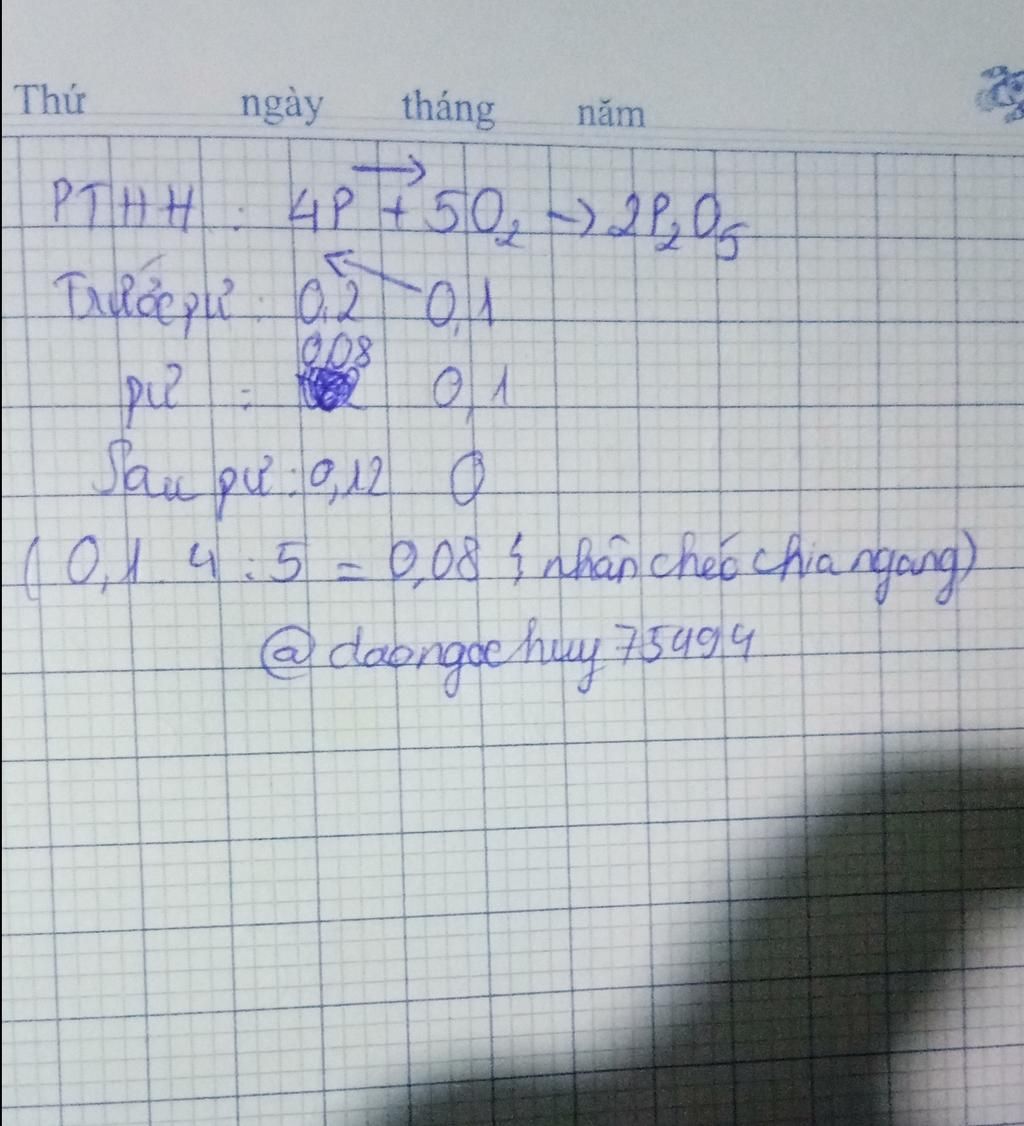 Thứ ngày tháng năm
PTHH : 4P + 5O₂ → 2P₂O₅
Trước pư : 0,2 0,1
pư : 0,08 0,1
Sau pư : 0,12 0
( 0,1 4 : 5 = 0,08 { nhân chéo chia ngang)
@daongochuy75494